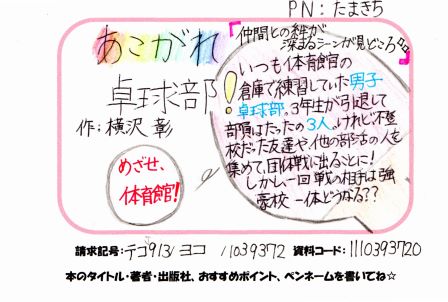 PN：たまきち
あこがれ
卓球部！
作：横沢 彰
めざせ、
体育館！
『仲間との絆が
深まるシーンが見どころ』
いつも体育館の
倉庫で練習していた男子
卓球部。3年生が引退して
部員はたったの3人。けれど不登
校だった友達や他の部活の人を
集めて、団体戦に出ることに！
しかし一回戦の相手は強
豪校 一体どうなる？？
請求記号：テコ913/ヨコ /1039372 資料コード：1110393720
本のタイトル・著者・出版社、おすすめポイント、ペンネームを書いてね☆